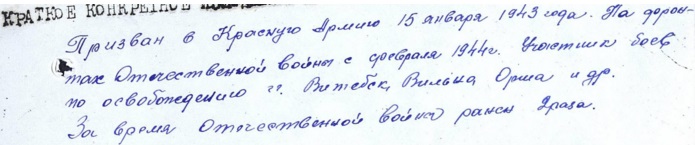 КРАТКОЕ КОНКРЕТНОЕ
Призван в Красную Армию 15 января 1943 года. На фрон-
тах Отечественной войны с февраля 1944г. Участник боев
по освобождению гг. Витебск, Вильна Орша и др.
За время Отечественной войны ранен 2 раза.